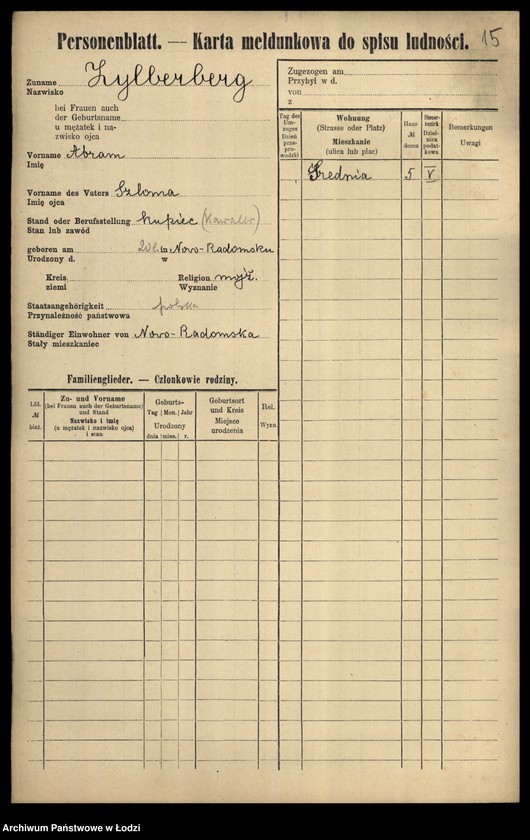 Personenblatt. — Karta meldunkowa do spisu ludności. 15
Zuname Zylberberg
Nazwisko
bei Frauen auch
der Geburtsname
u mężatek i na-
zwisko ojca
Vorname Abram
Imię
Vorname des Vaters Szloma
Imię ojca
Stand oder Berufsstellung kupiec (kawaler)
Stan lub zawód
geboren am 20 l. in Nowo-Radomsku
Urodzony d. w
Kreis Religion mojż.
ziemi Wyznanie
Staatsangehörigkeit polska
Przynależność państwowa
Ständiger Einwohner von Nowo-Radomska
Stały mieszkaniec
Familienglieder. — Członkowie rodziny.
Lfd.
№
bież.
Zu- und Vorname
(bei Frauen auch der Geburtsname)
und Stand
Nazwisko i imię
(u mężatek i nazwisko ojca)
i stan
Geburts-
Tag Mon. Jahr
Urodzony
dnia mies. r.
Geburtsort
und Kreis
Miejsce
urodzenia
Rel.
Wyzn.
Zugezogen am
Przybył w d.
von
z
Tag des
Um-
zuges
Dzień
prze-
pro-
wadzki
Wohnung
(Strasse oder Platz)
Mieszkanie
(ulica lub plac)
Haus
№
domu
Steuer-
bezirk
Dziel-
nica
podat-
kowa
Bemerkungen
Uwagi
Średnia 5 V
Archiwum Państwowe w Łodzi